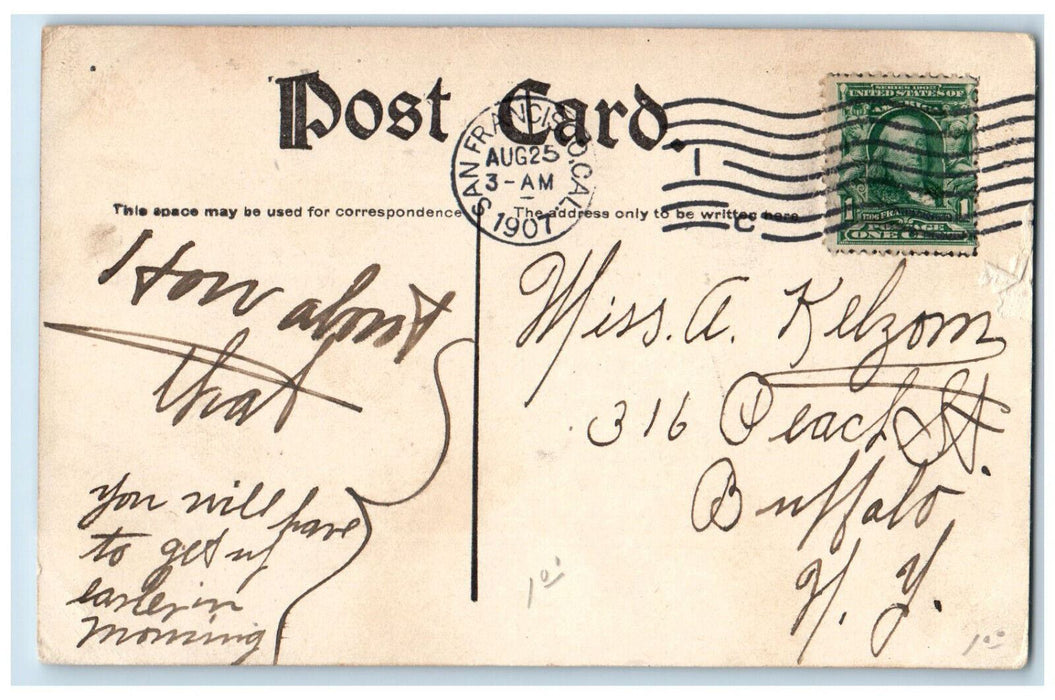 Post Card.
SAN FRANCISCO, CAL.
AUG 25
3-AM
1907
1
C
SERIES 1902
UNITED STATES OF
AMERICA
1 FRANKLIN 1
POSTAGE
ONE CENT
This space may be used for correspondence
The address only to be written here
How about
that
you will have
to get up
earlier in
morning
Miss. A. Kelzom
316 Peach St.
Buffalo,
N. Y.
1 00
1 00